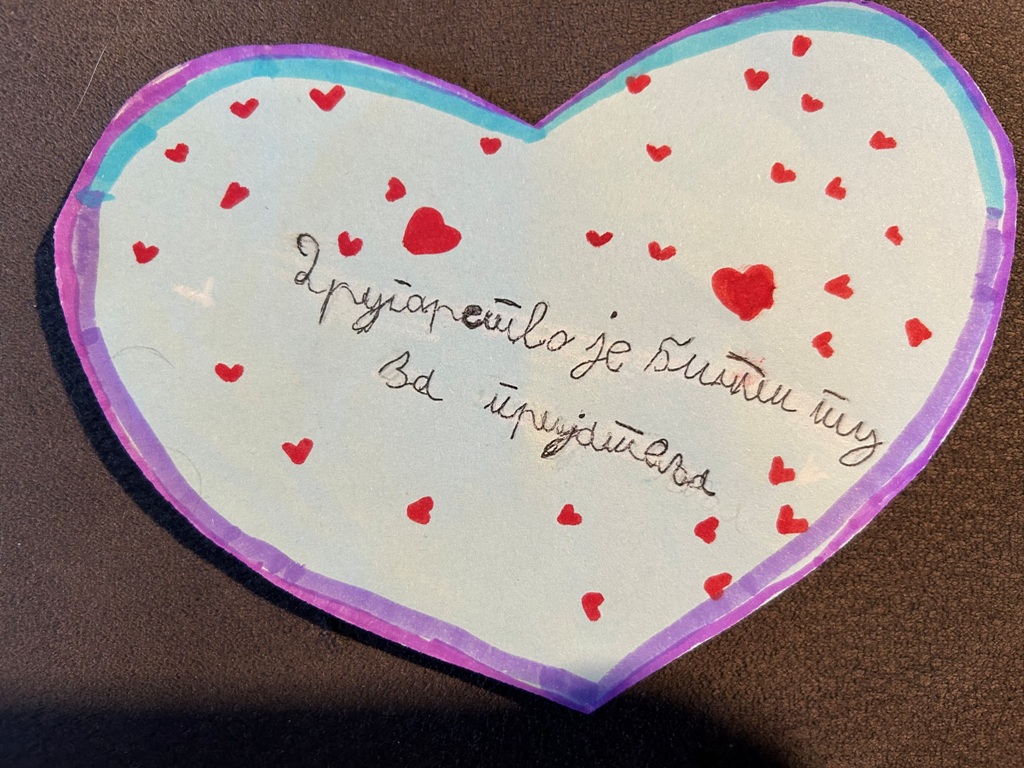 Другарство је бити ту
за пријатеља